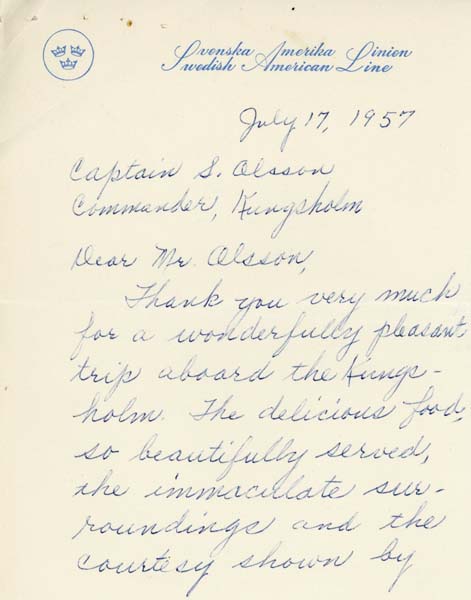 Svenska Amerika Linien
Swedish American Line
July 17, 1957
Captain S. Olsson
Commander, Kungsholm
Dear Mr. Olsson,
Thank you very much
for a wonderfully pleasant
trip aboard the Kungs-
holm. The delicious food,
so beautifully served,
the immaculate sur-
roundings and the
courtesy shown by